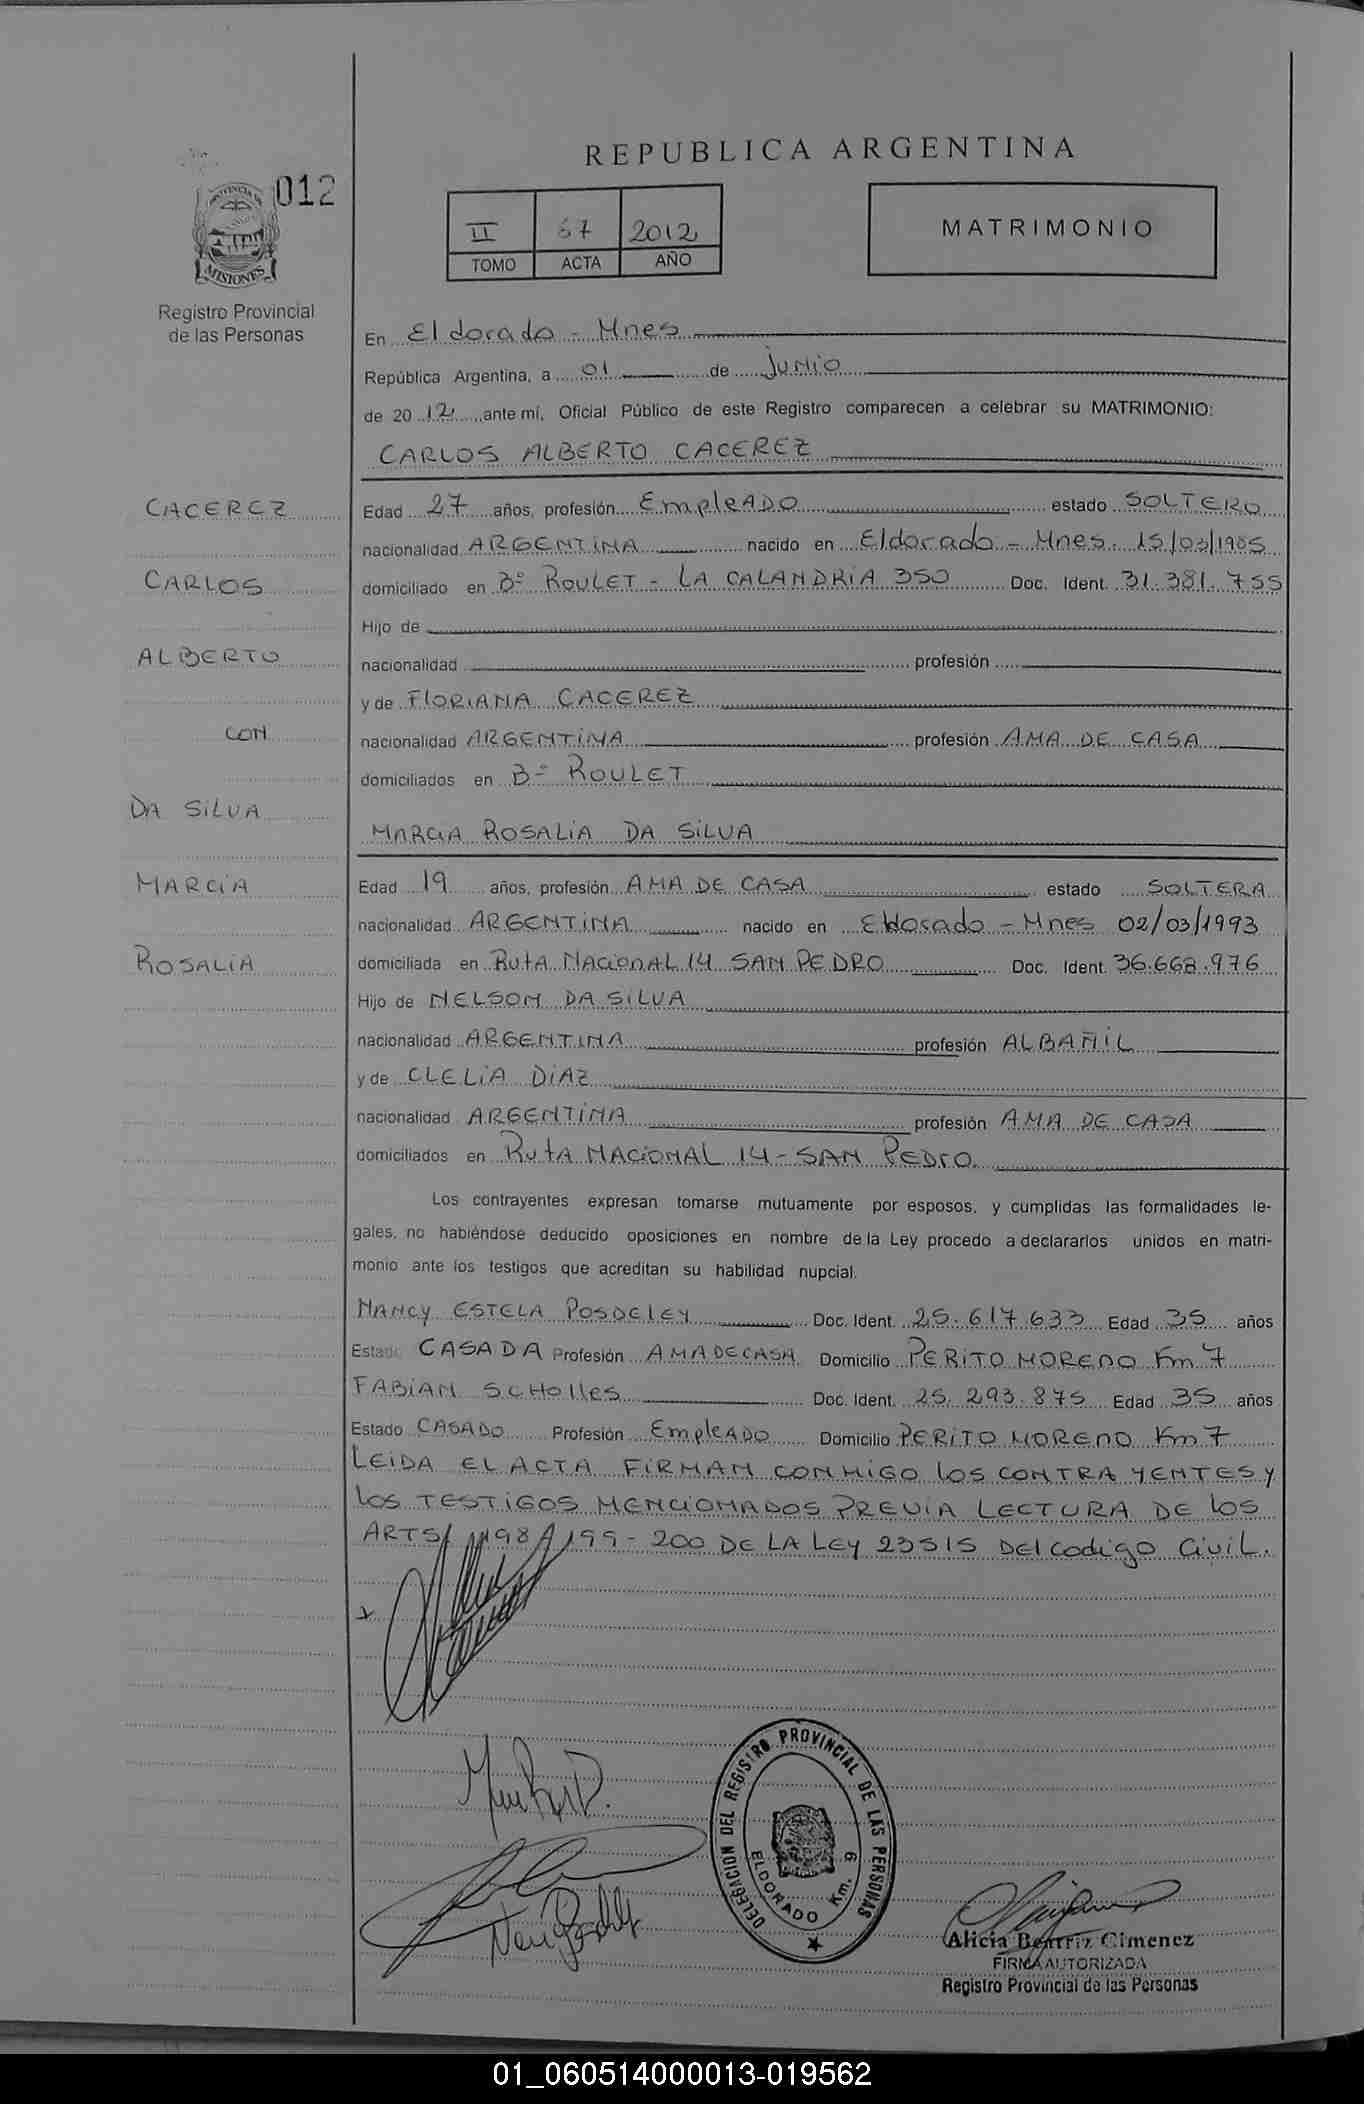 REPUBLICA ARGENTINA
012
PROVINCIA DE
MISIONES
Registro Provincial
de las Personas
II 67 2012
TOMO ACTA AÑO
MATRIMONIO
En Eldorado - Mnes
República Argentina, a 01 de junio
de 2012 ante mí, Oficial Público de este Registro comparecen a celebrar su MATRIMONIO:
CARLOS ALBERTO CACEREZ
CACEREZ
CARLOS
ALBERTO
CON
DA SILVA
MARCIA
ROSALIA
Edad 27 años, profesión EmpleADO estado SOLTERO
nacionalidad ARGENTINA nacido en Eldorado - Mnes. 15/03/1985
domiciliado en Bº ROULET - LA CALANDRIA 350 Doc. Ident. 31.381.755
Hijo de
nacionalidad profesión
y de FLORIANA CACEREZ
nacionalidad ARGENTINA profesión AMA DE CASA
domiciliados en Bº ROULET
MARCIA ROSALIA DA SILVA
Edad 19 años, profesión AMA DE CASA estado SOLTERA
nacionalidad ARGENTINA nacido en Eldorado - Mnes 02/03/1993
domiciliada en RUTA NACIONAL 14 SAN PEDRO Doc. Ident. 36.668.976
Hijo de NELSON DA SILVA
nacionalidad ARGENTINA profesión ALBAÑIL
y de CLELIA DIAZ
nacionalidad ARGENTINA profesión AMA DE CASA
domiciliados en RUTA NACIONAL 14 - SAN PEDRO
Los contrayentes expresan tomarse mutuamente por esposos, y cumplidas las formalidades le-
gales, no habiéndose deducido oposiciones en nombre de la Ley procedo a declararlos unidos en matri-
monio ante los testigos que acreditan su habilidad nupcial.
NANCY ESTELA POSDELEY Doc. Ident. 25.617.633 Edad 35 años
Estado CASADA Profesión AMA DE CASA Domicilio PERITO MORENO Km 7
FABIAN SCHOLLES Doc. Ident. 25.293.875 Edad 35 años
Estado CASADO Profesión EmpleADO Domicilio PERITO MORENO Km 7
LEIDA EL ACTA FIRMAN CONMIGO LOS CONTRAYENTES Y
LOS TESTIGOS MENCIONADOS PREVIA LECTURA DE LOS
ARTS 198/199 - 200 DE LA LEY 23515 DEL Codigo Civil.
DELEGACION DEL REGISTRO PROVINCIAL DE LAS PERSONAS
ELDORADO Km. 9
Alicia Beatriz Gimenez
FIRMA AUTORIZADA
Registro Provincial de las Personas
01_060514000013-019562